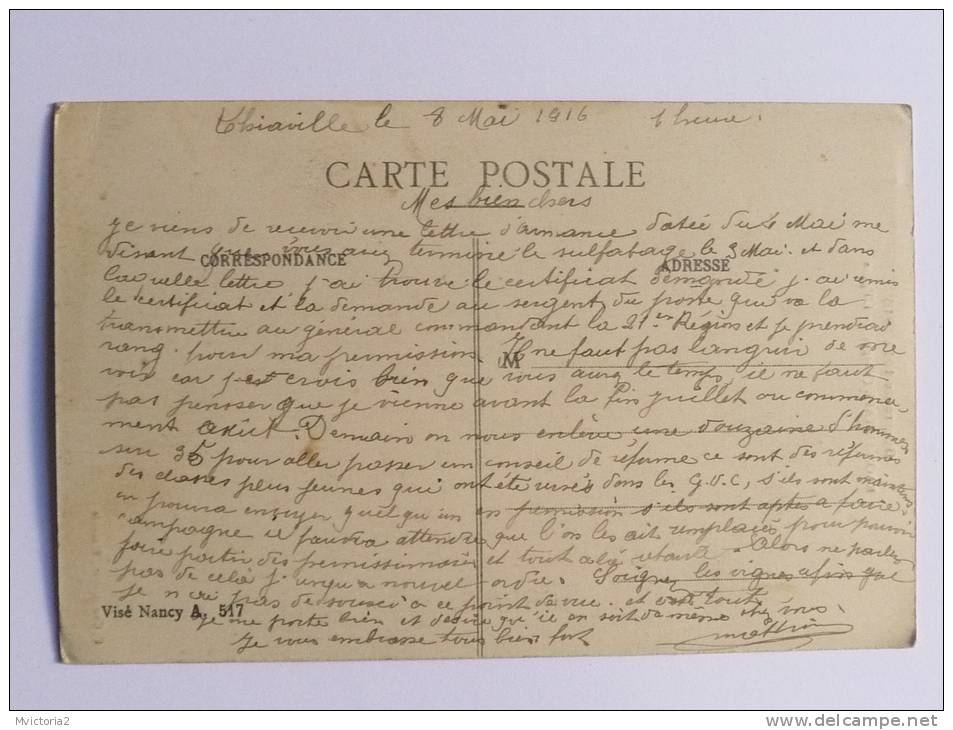 Thiaville le 8 Mai 1916 1 heure.
CARTE POSTALE
Mes bien chers
je viens de recevoir une lettre d'armance datée du 4 Mai me
disant que vous aviez terminé le sulfatage le 3 Mai. et dans
CORRESPONDANCE ADRESSE
laquelle lettre j'ai trouvé le certificat demandé j'ai remis
le certificat et la demande au sergent du poste qui va la
transmettre au général commandant la 21e Région et je prendrai
rang pour ma permission Il ne faut pas languir de me
M
voir car j'est crois bien que vous aurez le temps, il ne faut
pas pensser que je vienne avant la fin juillet ou commence-
ment aout. Demain on nous enlève une douzaine d'hommes
sur 35 pour aller passer un conseil de réforme ce sont des réformés
des classes plus jeunes qui ont été versés dans les G.V.C, s'ils sont maintenus
on pourra envoyer quelqu'un en permission s'ils sont aptes a faire
campagne il faudra attendre que l'on les ait remplacés pour pouvoir
faire partir des permissionnaires et tout Alors ne parlez
pas de cela j'usqu'a nouvel ordre. Soignez les vignes afin que
je n'ai pas de soucis a ce point de vue. et tout
Visé Nancy A. 517
je me porte bien et désire qu'il en soit de même chez vous.
Je vous embrasse tous bien fort
Mvictoria2
www.delcampe.net